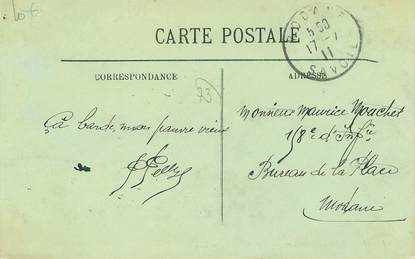 10€
MODANE
5 50
17 - 1
11
SAVOIE
CARTE POSTALE
CORRESPONDANCE
ADRESSE
73
Ça barde, mon pauvre vieux
Monsieur Maurice Mouchet
158e d'Infie
Bureau de la Place
Modane